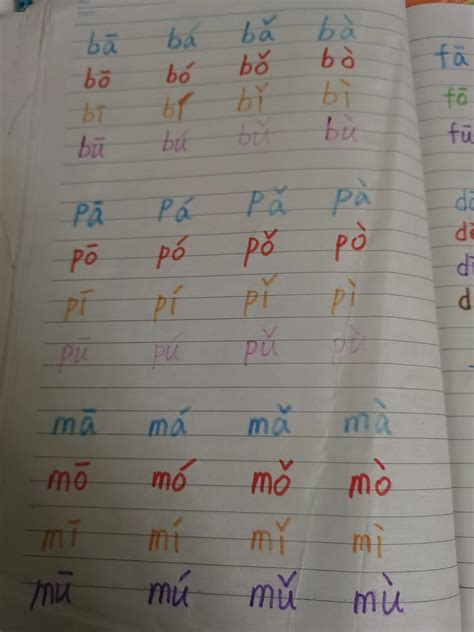 bā bá bǎ bà
bō bó bǒ bò
bī bí bǐ bì
bū bú bǔ bù
pā pá pǎ pà
pō pó pǒ pò
pī pí pǐ pì
pū pú pǔ pù
mā má mǎ mà
mō mó mǒ mò
mī mí mǐ mì
mū mú mǔ mù
fā
fō
fū